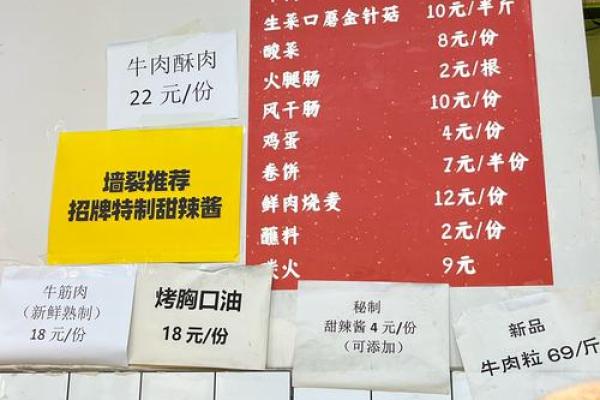 生菜口蘑金针菇 10元/半斤
酸菜 8元/份
火腿肠 2元/根
风干肠 10元/份
鸡蛋 4元/份
卷饼 7元/半份
鲜肉烧麦 12元/份
蘸料 2元/份
炭火 9元
牛肉酥肉
22 元/份
墙裂推荐
招牌特制甜辣酱
牛筋肉
（新鲜熟制）
18 元/份
烤胸口油
18 元/份
秘制
甜辣酱 4 元/份
（可添加）
新品
牛肉粒 69/斤